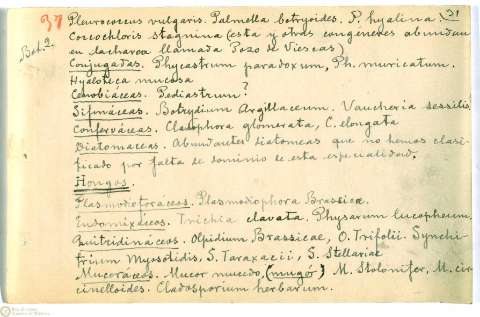 37
31
Bot. 2.
Pleurococcus vulgaris. Palmella botryoides. P. hyalina.
Coccochloris stagnina (esta y otras congéneres abundan
en la charca llamada Pozo de Viescas)
Conjugadas. Phycastrum paradoxum, Ph. muricatum.
Hyaloteca mucosa
Cenobiáceas. Pediastrum?
Sifonáceas. Botrydium Argillaceum. Vaucheria sessilis
Conferváceas. Cladophora glomerata, C. elongata
Diatomáceas. Abundantes diatomeas que no hemos clasi-
ficado por falta de dominio de esta especialidad.
Hongos.
Plasmodioforáceos. Plasmodiophora Brassica.
Endomixáceos. Trichia clavata. Physarum lucopheum.
Quitridináceos. Olpidium Brassicae, O. Trifolii. Synchi-
trium Myosotidis, S. Taraxacii, S. Stellariae
Mucoráceos. Mucor mucedo, (mugór) M. Stolonifer, M. cir-
cinelloides. Cladosporium herbarum.